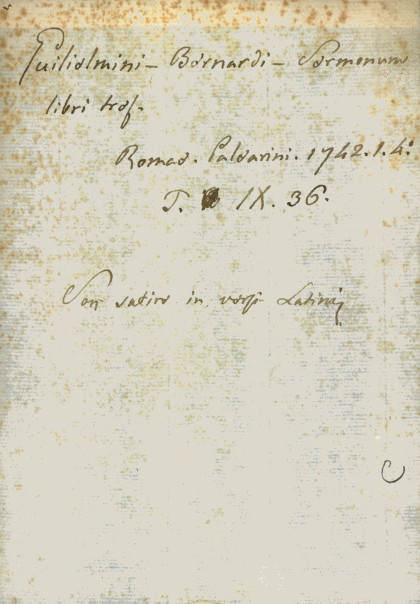 Guilielmini - Bernardi - Sermonum
libri tres.
Romae. Paldarini. 1742. 1. 4º
T. IX. 36.
Son satire in versi Latini